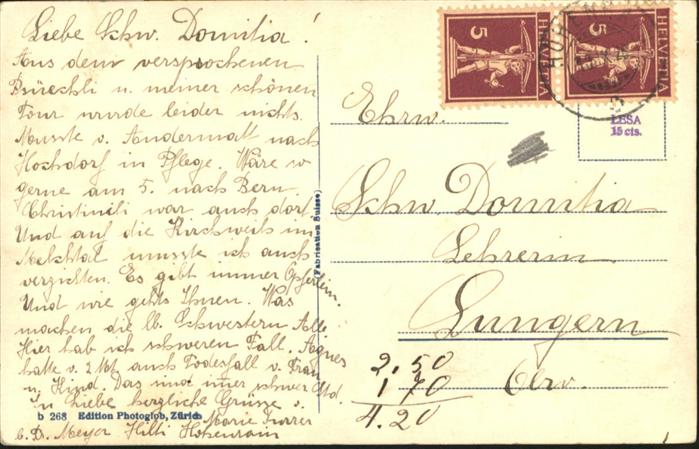 Liebe Schw. Domitia!
Aus dem versprochenen
Bsüechli u. meiner schönen
Tour wurde leider nichts.
Musste v. Andermatt nach
Hochdorf in Pflege. Wäre so
gerne am 5. nach Bern.
Christineli war auch dort
Und auf die Kirschweih im
Melchtal musste ich auch
verzichten. Es gibt immer Opferlein.
Und wie gehts Ihnen. Was
machen die lb. Schwestern Alle
Hier hab ich schweren Fall. Agnes
hatte v. 2 Mt. auch Todesfall v. Frau
u. Kind. Das sind immer schwere
In Liebe herzliche Grüsse v.
Marie Furrer
b. D. Meyer Hilti Hohenrain
b 268 Edition Photoglob, Zürich
(Fabrication Suisse)
5 HELVETIA
5 HELVETIA
LESA
15 cts.
Ehrw.
Schw Domitia
Lehrerin
Lungern
Obw.
2.50
1 70
4.20